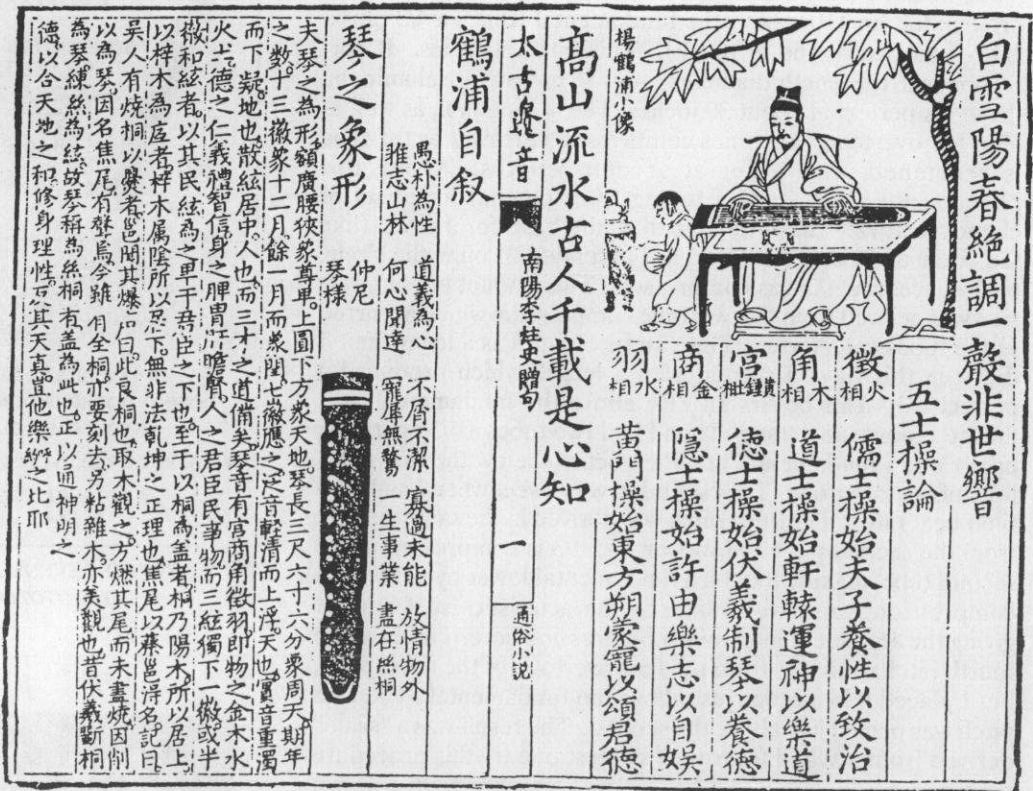 白雪陽春絶調一聲非世響
五士操論
徵火相 儒士操始夫子養性以致治
角木相 道士操始軒轅運神以樂道
宮 德士操始伏羲制琴以養德
商金相 隱士操始許由樂志以自娛
羽水相 黄門操始東方朔蒙寵以頌君德
楊鶴浦小像
高山流水古人千載是心知
太古遺音 南陽李 一 通俗小説
鶴浦自叙
愚朴為性 道義為心 不屑不潔 寡過未能 放情物外
雅志山林 何心聞達 寵辱無驚 一生事業 盡在絲桐
琴之象形
仲尼
琴様
夫琴之為形額廣腰狹象尊卑上圓下方象天地琴長三尺六寸六分象周天期年
之數十三徽象十二月餘一月而象閏七徽應之定音輕清而上浮天也實音重濁
而下凝地也散絃居中人也而三才之道備矣琴音有宮商角徵羽即物之金木水
火土德之仁義禮智信身之脾胃肝膽腎人之君臣民事物而三絃獨下一徽或半
徽和絃者以其民絃為之卑于君臣之下也至于以桐為盖者桐乃陽木所以居上
以梓木為底者梓木属陰所以忍下無非法乾坤之正理也焦尾以蔡邕淂名記曰
吳人有焼桐以爨者邕聞其爆曰此良桐也取木觀之方燃其尾而未盡焼因削
以為琴因名焦尾有聲焉今雖用全桐亦要刻去另粘雜木亦美觀也昔伏羲斲桐
為琴練絲為絃故琴稱為絲桐有盖為此也正以通神明之
德以合天地之和修身理性反其天真豈他樂之比耶